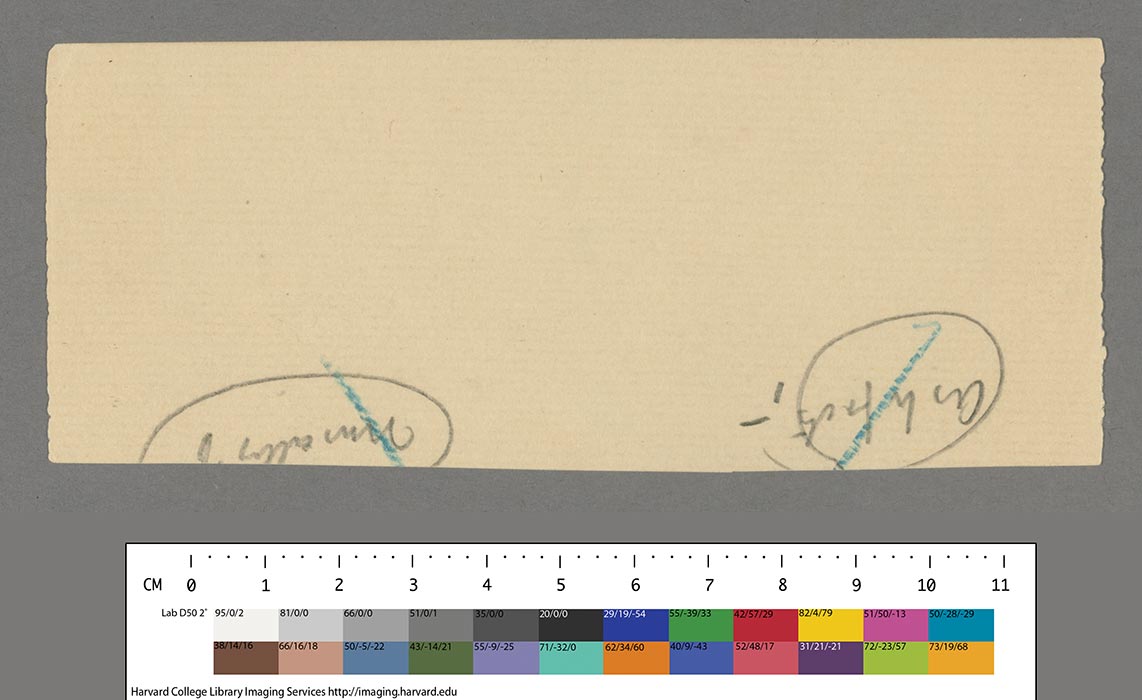 as to facts
CM 0 1 2 3 4 5 6 7 8 9 10 11
Lab D50 2° 95/0/2 81/0/0 66/0/0 51/0/1 35/0/0 20/0/0 29/19/-54 55/-39/33 42/57/29 82/4/79 51/50/-13 50/-28/-29
38/14/16 66/16/18 50/-5/-22 43/-14/21 55/-9/-25 71/-32/0 62/34/60 40/9/-43 52/48/17 31/21/-21 72/-23/57 73/19/68
Harvard College Library Imaging Services http://imaging.harvard.edu